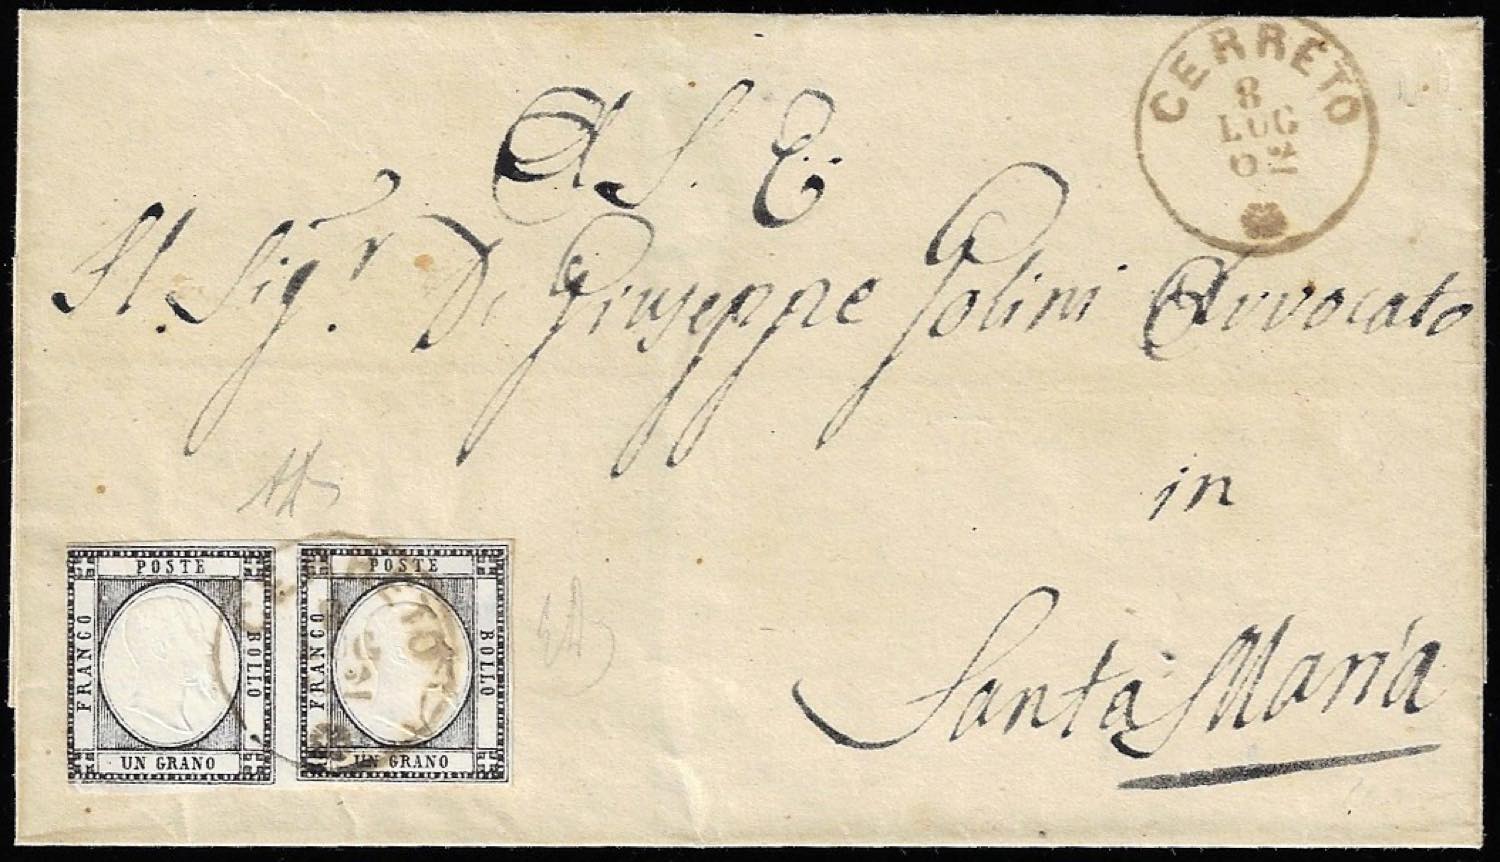 CERRETO
8
LUG
62
A S. E.
Al. Sig.r D. Giuseppe Polini Avvocato
in
Santa Maria
POSTE
FRANCO
BOLLO
UN GRANO
POSTE
FRANCO
BOLLO
UN GRANO